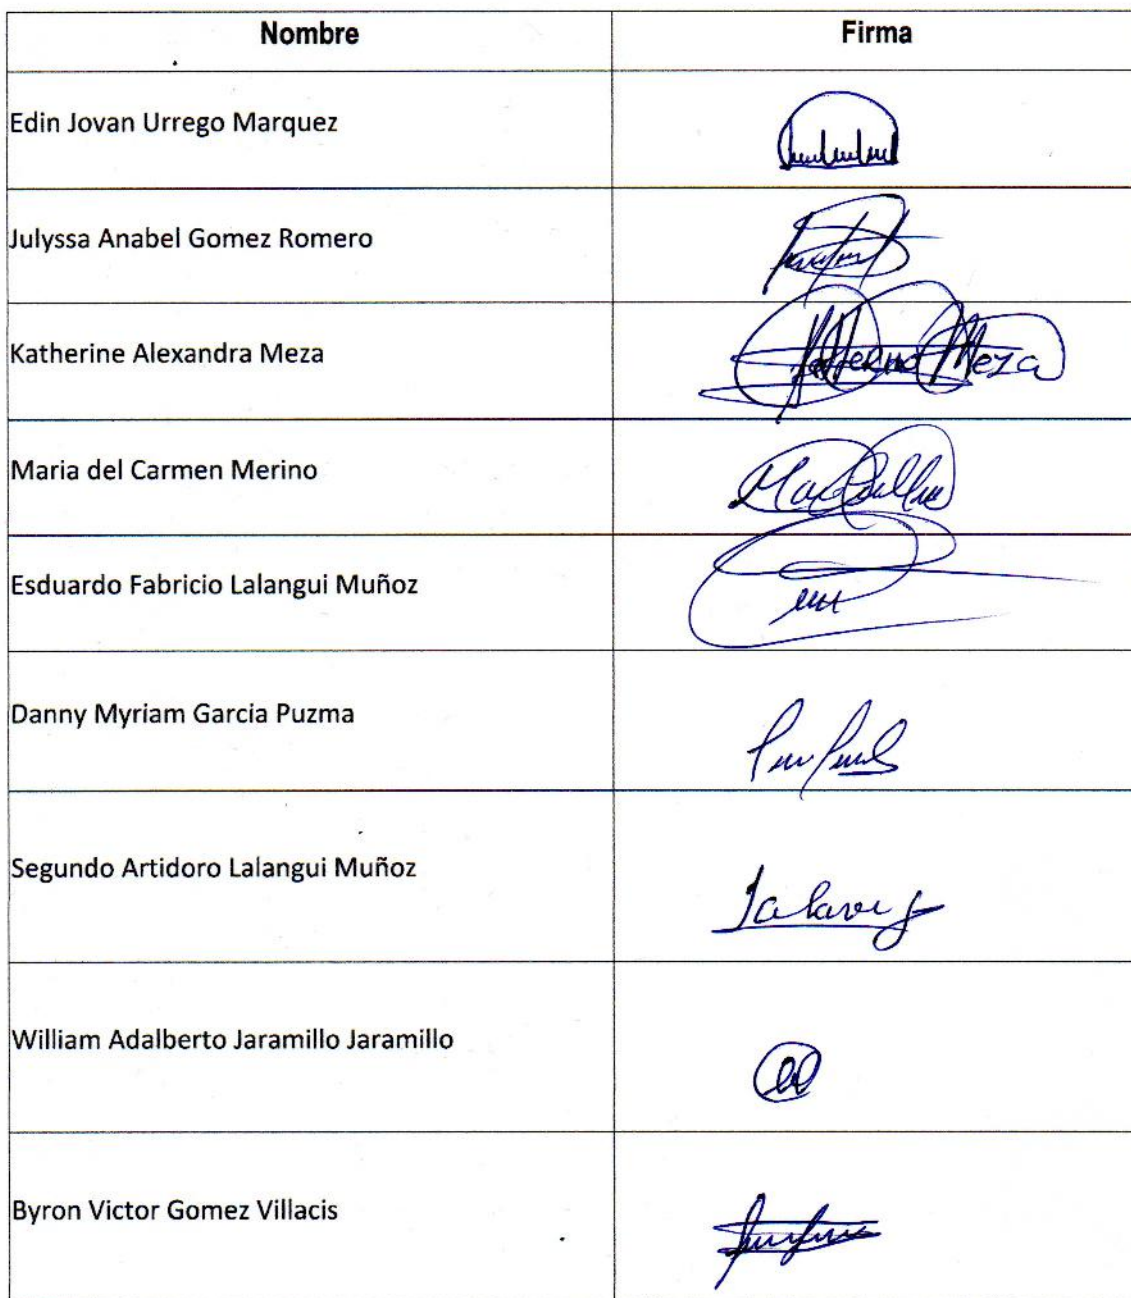 Nombre Firma
Edin Jovan Urrego Marquez
Julyssa Anabel Gomez Romero
Katherine Alexandra Meza Meza
Maria del Carmen Merino
Esduardo Fabricio Lalangui Muñoz
Danny Myriam Garcia Puzma
Segundo Artidoro Lalangui Muñoz
William Adalberto Jaramillo Jaramillo
Byron Victor Gomez Villacis